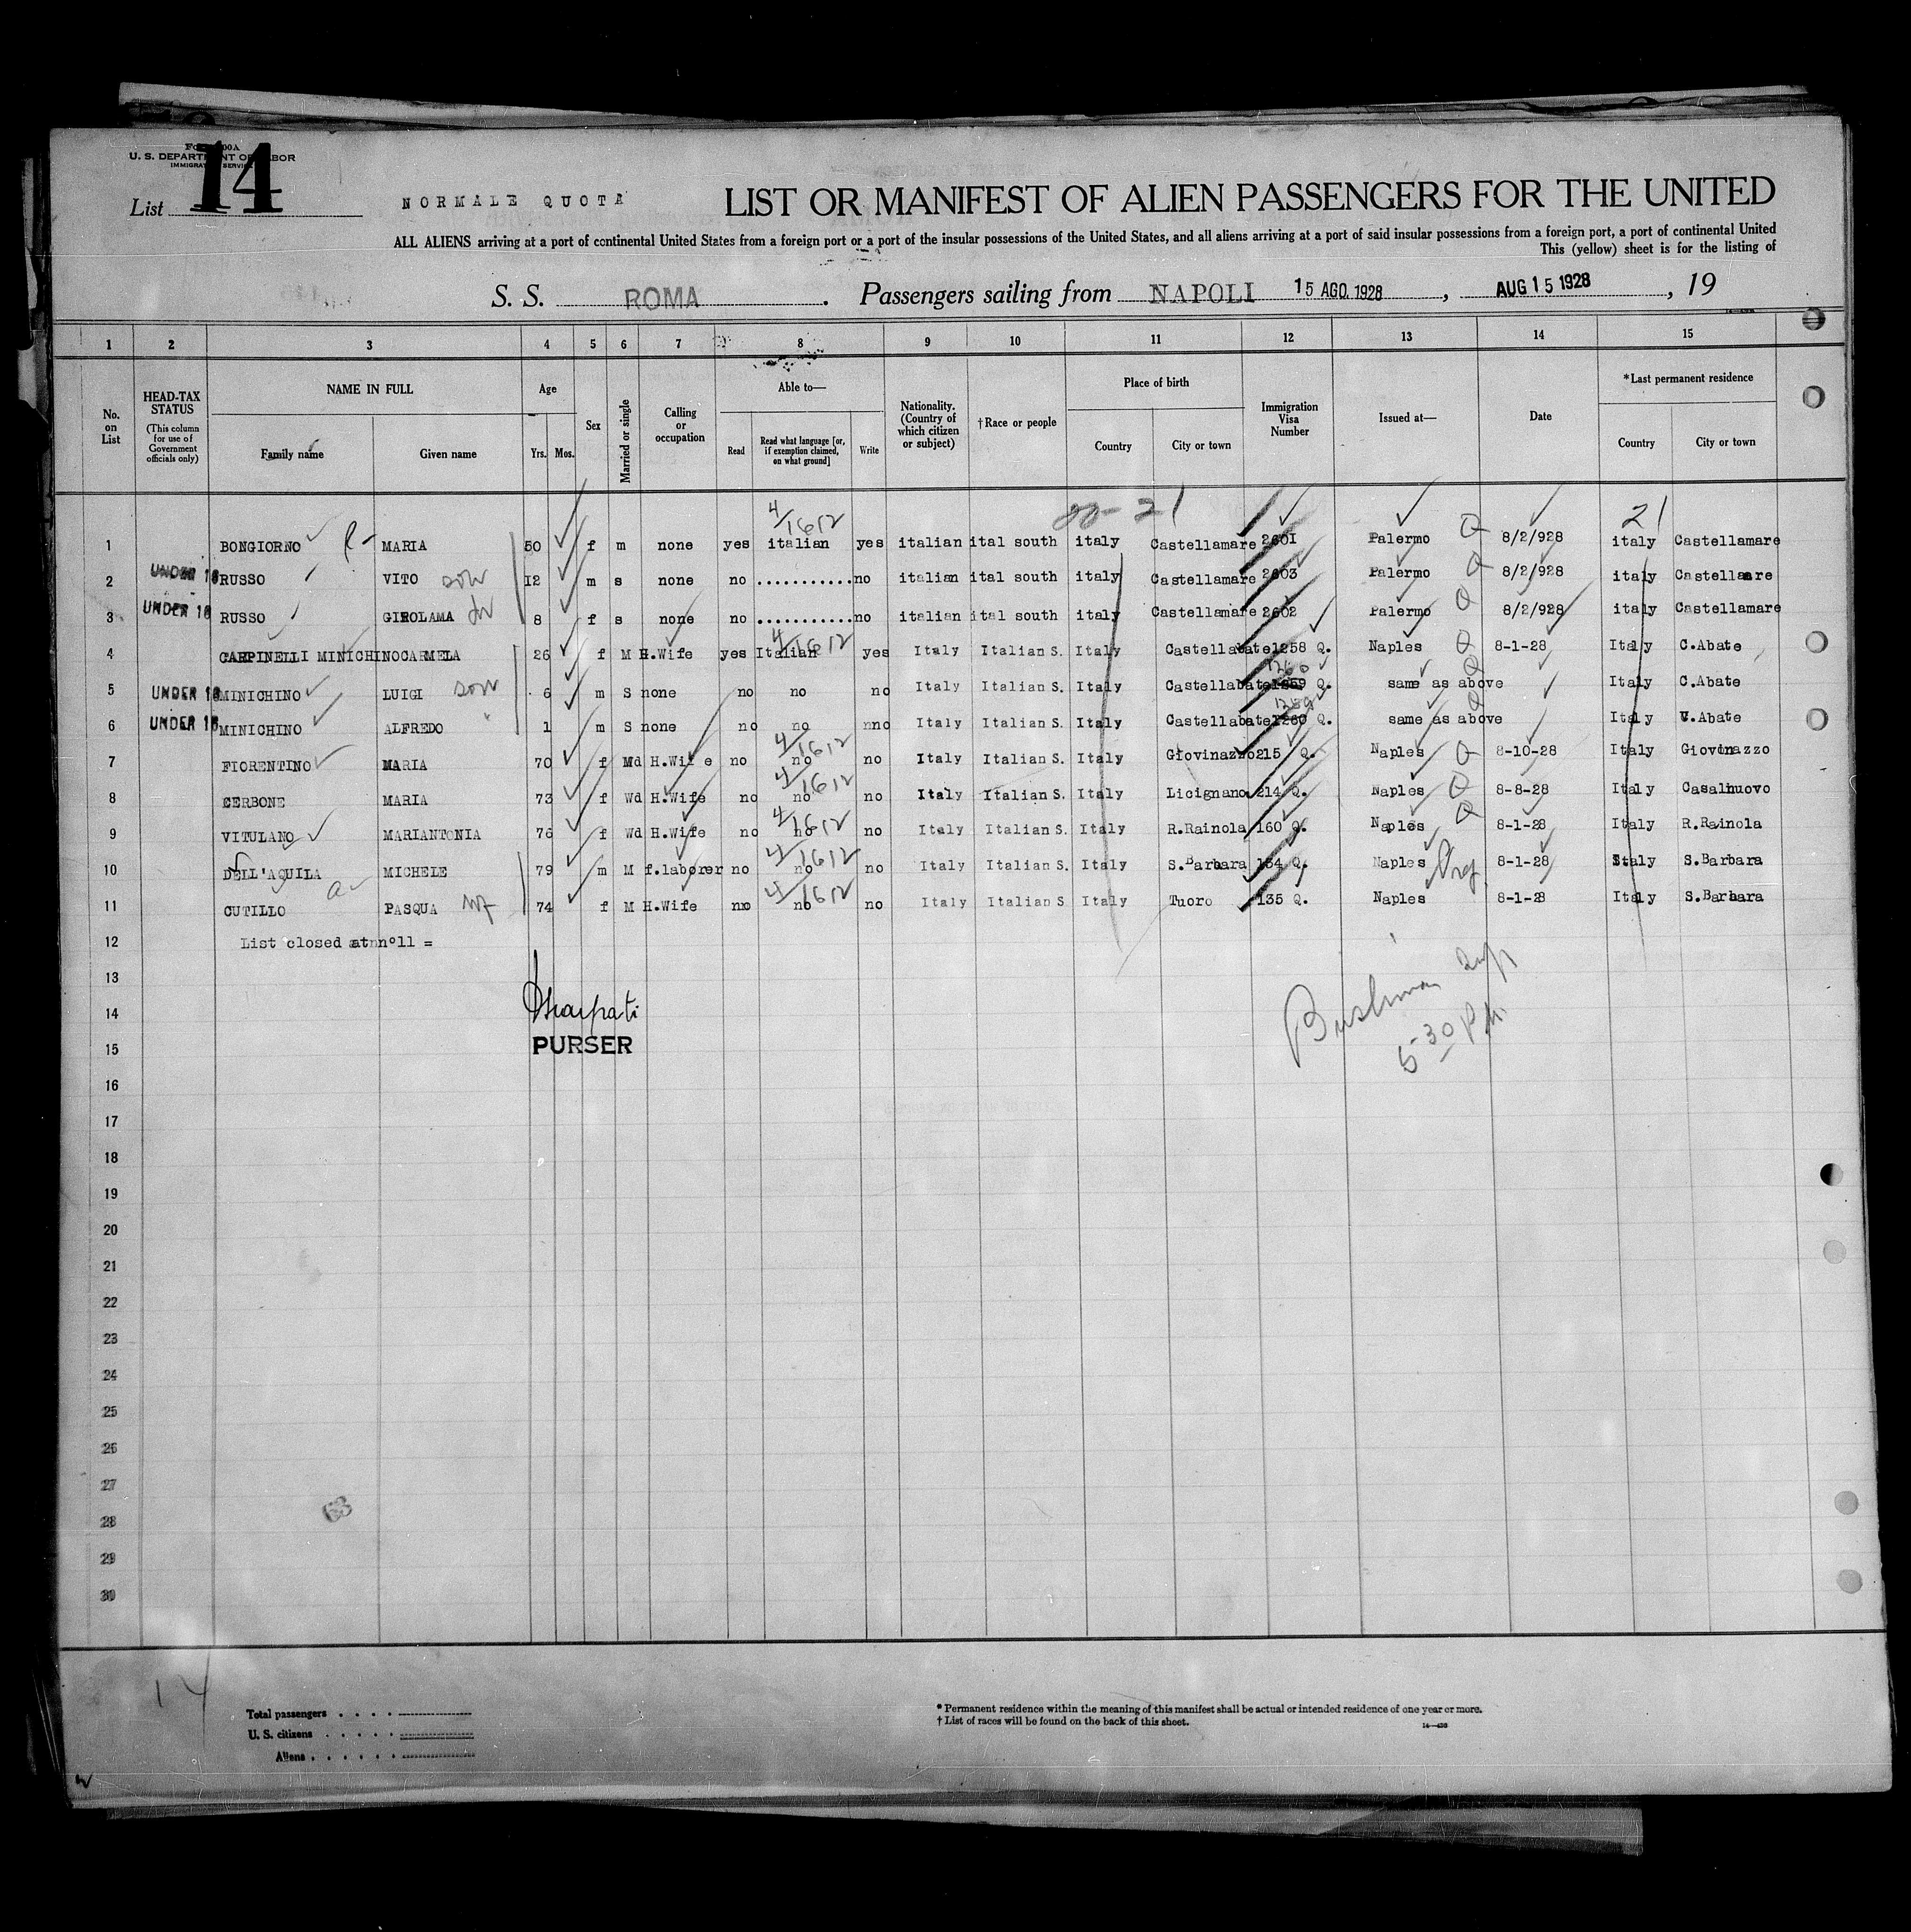 U. S. DEPARTMENT OF LABOR
IMMIGRATION SERVICE
List 14
NORMALE QUOTA
LIST OR MANIFEST OF ALIEN PASSENGERS FOR THE UNITED
ALL ALIENS arriving at a port of continental United States from a foreign port or a port of the insular possessions of the United States, and all aliens arriving at a port of said insular possessions from a foreign port, a port of continental United
This (yellow) sheet is for the listing of
S. S. ROMA . Passengers sailing from NAPOLI 15 AGO. 1928 , AUG 15 1928 , 19
1 2 3 4 5 6 7 8 9 10 11 12 13 14 15
No. on List
HEAD-TAX STATUS (This column for use of Government officials only)
NAME IN FULL
Family name Given name
Age
Yrs. Mos.
Sex
Married or single
Calling or occupation
Able to—
Read Read what language [or, if exemption claimed, on what ground] Write
Nationality. (Country of which citizen or subject)
†Race or people
Place of birth
Country City or town
Immigration Visa Number
Issued at—
Date
*Last permanent residence
Country City or town
4/1612 21 21
1 BONGIORNO MARIA 50 f m none yes italian yes italian ital south italy Castellamare 2601 Palermo Q 8/2/928 italy Castellamare
2 UNDER 16 RUSSO VITO son 12 m s none no ........... no italian ital south italy Castellamare 2603 Palermo Q 8/2/928 italy Castellamare
3 UNDER 16 RUSSO GIROLAMA 8 f s none no ........... no italian ital south italy Castellamare 2602 Palermo Q 8/2/928 italy Castellamare
4 CARPINELLI MINICHINO CARMELA 26 f M H.Wife yes Italian 4/1612 yes Italy Italian S. Italy Castellabate 1258 Q. Naples Q 8-1-28 Italy C.Abate
5 UNDER 16 MINICHINO LUIGI son 6 m S none no no no Italy Italian S. Italy Castellabate 1259 1260 Q. same as above Q Italy C.Abate
6 UNDER 16 MINICHINO ALFREDO " 1 m S none no no nno Italy Italian S. Italy Castellabate 1260 1259 Q. same as above Q Italy C.Abate
7 FIORENTINO MARIA 70 f Wd H.Wife no no 4/1612 no Italy Italian S. Italy Giovinazzo 215 Q. Naples Q 8-10-28 Italy Giovinazzo
8 CERBONE MARIA 73 f Wd H.Wife no no 4/1612 no Italy Italian S. Italy Licignano 214 Q. Naples Q 8-8-28 Italy Casalnuovo
9 VITULANO MARIANTONIA 76 f Wd H.Wife no no 4/1612 no Italy Italian S. Italy R.Rainola 160 Q. Naples Q 8-1-28 Italy R.Rainola
10 DELL'AQUILA MICHELE 79 m M f.laborer no no 4/1612 no Italy Italian S. Italy S.Barbara 134 Q. Naples 8-1-28 Italy S.Barbara
11 CUTILLO PASQUA wf 74 f M H.Wife no no 4/1612 no Italy Italian S. Italy Tuoro 135 Q. Naples 8-1-28 Italy S.Barbara
12 List closed at n°11 =
13
14
15 PURSER
Bushman Insp
5-30 P.M.
16
17
18
19
20
21
22
23
24
25
26
27
28
29
30
63
14
Total passengers
U. S. citizens
Aliens
* Permanent residence within the meaning of this manifest shall be actual or intended residence of one year or more.
† List of races will be found on the back of this sheet.